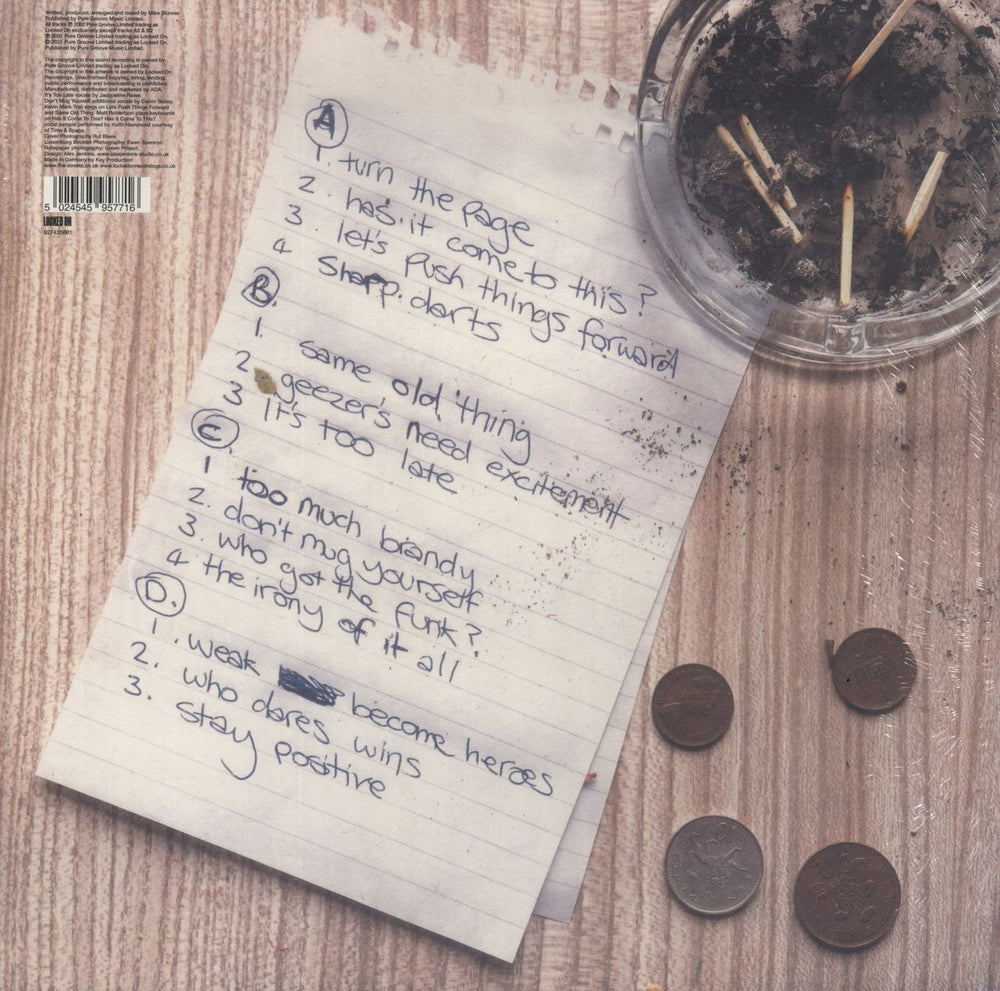 Written, produced, arranged and mixed by Mike Skinner.
Published by Pure Groove Music Limited.
All tracks ℗ 2002 Pure Groove Limited trading as
Locked On exclusively except tracks A2 & B2
℗ 2001 Pure Groove Limited trading as Locked On.
© 2021 Pure Groove Limited trading as Locked On.
Published by Pure Groove Music Limited.
The copyright in this sound recording is owned by
Pure Groove Limited trading as Locked On.
The copyright in this artwork is owned by Locked On
Recordings. Unauthorised copying, hiring, lending,
public performance and broadcasting is prohibited.
Manufactured, distributed and marketed by ADA.
It's Too Late vocals by Jacqueline Rawe.
Don't Mug Yourself additional vocals by Calvin Bailey.
Kevin Mark Trail sings on Lets Push Things Forward
and Same Old Thing. Matt Robertson plays keyboards
on Has It Come To This? Has It Come To This?
vocal sample performed by Keith Hammond courtesy
of Time & Space.
Cover Photography Rut Blees
Luxemburg Booklet Photography: Ewen Spencer.
Made in Germany by Key Production
www.the-streets.co.uk www.lockedonrecordings.co.uk
5 024545 957716
LOCKED ON
A
1. turn the page
2. has it come to this?
3. let's push things forward
4 sharp darts
B
1. same old thing
2 geezer's need excitement
3 It's too late
C
1 too much brandy
2. don't mug yourself
3. who got the funk?
4 the irony of it all
D.
1. weak become heroes
2. who dares wins
3. stay positive